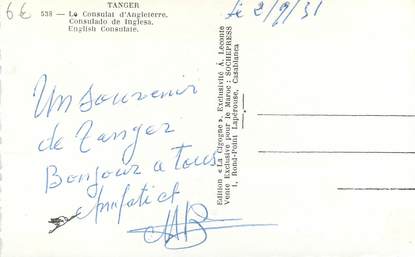 6€
TANGER
538 — Le Consulat d'Angleterre.
Consulado de Inglesa.
English Consulate.
Le 2/9/51
Un souvenir
de Tanger
Bonjour a tous
Edition « La Cigogne ». Exclusivité A. Leconte
Vente Exclusive pour le Maroc : SOCHEPRESS
1, Rond-Point Lapérouse, Casablanca